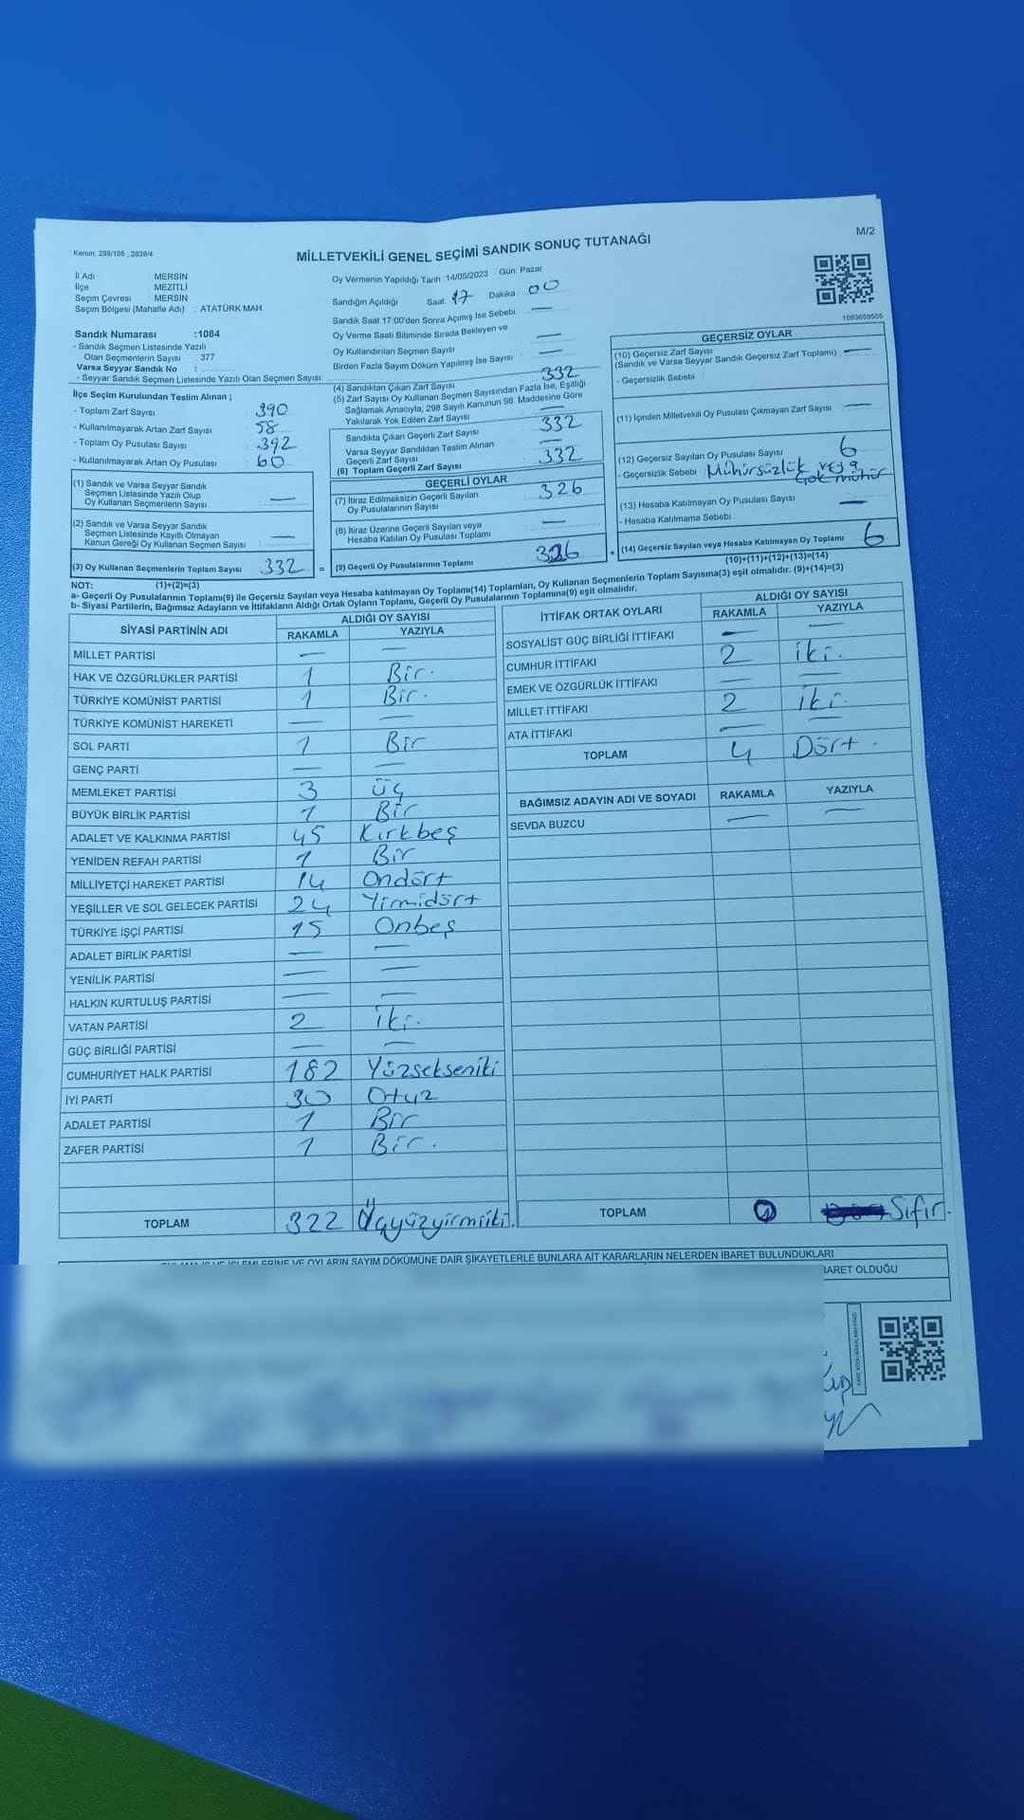 Kanun: 298/105 , 2839/4
MİLLETVEKİLİ GENEL SEÇİMİ SANDIK SONUÇ TUTANAĞI
M/2
İl Adı : MERSİN
İlçe MEZİTLİ
Seçim Çevresi MERSİN
Seçim Bölgesi (Mahalle Adı) : ATATÜRK MAH.
Sandık Numarası :1084
- Sandık Seçmen Listesinde Yazılı
Olan Seçmenlerin Sayısı : 377
Varsa Seyyar Sandık No :
- Seyyar Sandık Seçmen Listesinde Yazılı Olan Seçmen Sayısı:
İlçe Seçim Kurulundan Teslim Alınan ;
- Toplam Zarf Sayısı 390
- Kullanılmayarak Artan Zarf Sayısı 58
- Toplam Oy Pusulası Sayısı 392
- Kullanılmayarak Artan Oy Pusulası 60
(1) Sandık ve Varsa Seyyar Sandık
Seçmen Listesinde Yazılı Olup
Oy Kullanan Seçmenlerin Sayısı : —
(2) Sandık ve Varsa Seyyar Sandık
Seçmen Listesinde Kayıtlı Olmayan
Kanun Gereği Oy Kullanan Seçmen Sayısı : —
(3) Oy Kullanan Seçmenlerin Toplam Sayısı 332 =
(1)+(2)=(3)
Oy Vermenin Yapıldığı Tarih :14/05/2023 Gün: Pazar
Sandığın Açıldığı Saat: 17 Dakika 00
Sandık Saat 17:00'den Sonra Açılmış İse Sebebi : —
Oy Verme Saati Bitiminde Sırada Bekleyen ve
Oy Kullandırılan Seçmen Sayısı —
Birden Fazla Sayım Döküm Yapılmış İse Sayısı —
(4) Sandıktan Çıkan Zarf Sayısı 332
(5) Zarf Sayısı Oy Kullanan Seçmen Sayısından Fazla İse, Eşitliği
Sağlamak Amacıyla, 298 Sayılı Kanunun 98. Maddesine Göre
Yakılarak Yok Edilen Zarf Sayısı —
Sandıkta Çıkan Geçerli Zarf Sayısı 332
Varsa Seyyar Sandıktan Teslim Alınan
Geçerli Zarf Sayısı —
(6) Toplam Geçerli Zarf Sayısı 332
GEÇERLİ OYLAR
(7) İtiraz Edilmeksizin Geçerli Sayılan
Oy Pusulalarının Sayısı 326
(8) İtiraz Üzerine Geçerli Sayılan veya
Hesaba Katılan Oy Pusulası Toplamı —
(9) Geçerli Oy Pusulalarının Toplamı 326 +
1083659555
GEÇERSİZ OYLAR
(10) Geçersiz Zarf Sayısı
(Sandık ve Varsa Seyyar Sandık Geçersiz Zarf Toplamı) —
- Geçersizlik Sebebi :
(11) İçinden Milletvekili Oy Pusulası Çıkmayan Zarf Sayısı —
(12) Geçersiz Sayılan Oy Pusulası Sayısı 6
- Geçersizlik Sebebi : Mühürsüzlük veya çok mühür
(13) Hesaba Katılmayan Oy Pusulası Sayısı —
- Hesaba Katılmama Sebebi :
(14) Geçersiz Sayılan veya Hesaba Katılmayan Oy Toplamı 6
(10)+(11)+(12)+(13)=(14)
NOT:
a- Geçerli Oy Pusulalarının Toplamı(9) ile Geçersiz Sayılan veya Hesaba katılmayan Oy Toplamı(14) Toplamları, Oy Kullanan Seçmenlerin Toplam Sayısına(3) eşit olmalıdır. (9)+(14)=(3)
b- Siyasi Partilerin, Bağımsız Adayların ve İttifakların Aldığı Ortak Oyların Toplamı, Geçerli Oy Pusulalarının Toplamına(9) eşit olmalıdır.
SİYASİ PARTİNİN ADI ALDIĞI OY SAYISI
RAKAMLA YAZIYLA
MİLLET PARTİSİ — —
HAK VE ÖZGÜRLÜKLER PARTİSİ 1 Bir.
TÜRKİYE KOMÜNİST PARTİSİ 1 Bir.
TÜRKİYE KOMÜNİST HAREKETİ — —
SOL PARTİ 1 Bir
GENÇ PARTİ — —
MEMLEKET PARTİSİ 3 üç
BÜYÜK BİRLİK PARTİSİ 1 Bir
ADALET VE KALKINMA PARTİSİ 45 Kırkbeş
YENİDEN REFAH PARTİSİ 1 Bir
MİLLİYETÇİ HAREKET PARTİSİ 14 Ondört
YEŞİLLER VE SOL GELECEK PARTİSİ 24 Yirmidört
TÜRKİYE İŞÇİ PARTİSİ 15 Onbeş
ADALET BİRLİK PARTİSİ — —
YENİLİK PARTİSİ — —
HALKIN KURTULUŞ PARTİSİ — —
VATAN PARTİSİ 2 iki.
GÜÇ BİRLİĞİ PARTİSİ — —
CUMHURİYET HALK PARTİSİ 182 Yüzsekseniki
İYİ PARTİ 30 Otuz
ADALET PARTİSİ 1 Bir
ZAFER PARTİSİ 1 Bir.
TOPLAM 322 Üçyüzyirmiiki.
İTTİFAK ORTAK OYLARI ALDIĞI OY SAYISI
RAKAMLA YAZIYLA
SOSYALİST GÜÇ BİRLİĞİ İTTİFAKI — —
CUMHUR İTTİFAKI 2 iki.
EMEK VE ÖZGÜRLÜK İTTİFAKI — —
MİLLET İTTİFAKI 2 iki.
ATA İTTİFAKI — —
TOPLAM 4 Dört.
BAĞIMSIZ ADAYIN ADI VE SOYADI RAKAMLA YAZIYLA
SEVDA BUZCU — —
TOPLAM 0 Sıfır.
VE OYLARIN SAYIM DÖKÜMÜNE DAİR ŞİKAYETLERLE BUNLARA AİT KARARLARIN NELERDEN İBARET BULUNDUKLARI
İBARET OLDUĞU